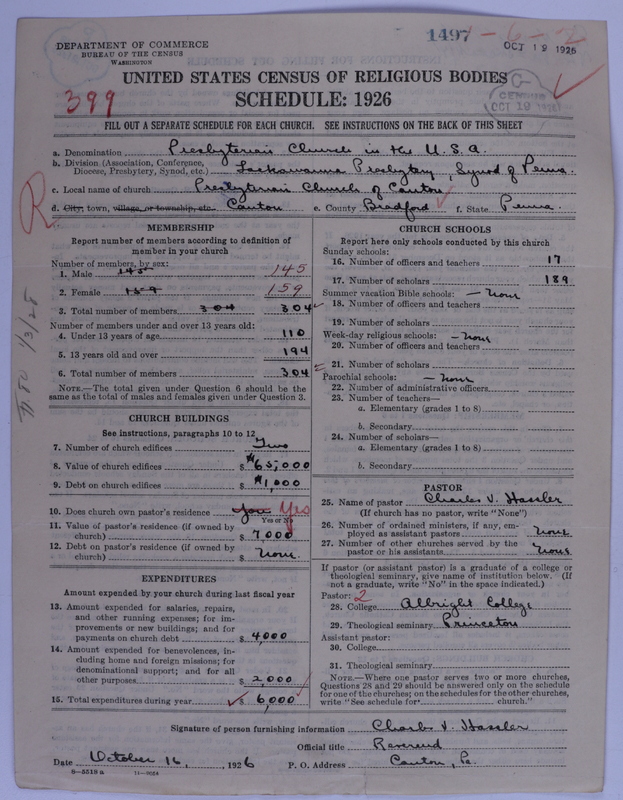 1497 - 6 - 2
OCT 19 1926
DEPARTMENT OF COMMERCE
BUREAU OF THE CENSUS
WASHINGTON
UNITED STATES CENSUS OF RELIGIOUS BODIES
399
SCHEDULE: 1926
CENSUS
OCT 19 1926
FILL OUT A SEPARATE SCHEDULE FOR EACH CHURCH. SEE INSTRUCTIONS ON THE BACK OF THIS SHEET
a. Denomination Presbyterian Church in the U.S.A.
b. Division (Association, Conference, Diocese, Presbytery, Synod, etc.) Lackawanna Presbytery, Synod of Penna.
c. Local name of church Presbyterian Church of Canton
d. City, town, village, or township, etc. Canton e. County Bradford f. State Penna.
R
MEMBERSHIP
Report number of members according to definition of
member in your church
Number of members, by sex:
1. Male 145 145
2. Female 159 159
3. Total number of members 304 304
Number of members under and over 13 years old:
4. Under 13 years of age 110
5. 13 years old and over 194
6. Total number of members 304
NOTE.—The total given under Question 6 should be
same as the total of males and females given under Question 3.
1/3/28
CHURCH BUILDINGS
See instructions, paragraphs 10 to 12
7. Number of church edifices Two
8. Value of church edifices $ 65,000
9. Debt on church edifices $ 1,000
10. Does church own pastor's residence Yes Yes
Yes or No
11. Value of pastor's residence (if owned by
church) $ 7,000
12. Debt on pastor's residence (if owned by
church) $ None
EXPENDITURES
Amount expended by your church during last fiscal year
13. Amount expended for salaries, repairs,
and other running expenses; for im-
provements or new buildings; and for
payments on church debt $ 4,000
14. Amount expended for benevolences, in-
cluding home and foreign missions; for
denominational support; and for all
other purposes $ 2,000
15. Total expenditures during year $ 6,000
CHURCH SCHOOLS
Report here only schools conducted by this church
Sunday schools:
16. Number of officers and teachers 17
17. Number of scholars 189
Summer vacation Bible schools: — None
18. Number of officers and teachers
19. Number of scholars
Week-day religious schools: — None
20. Number of officers and teachers
21. Number of scholars
Parochial schools: — None
22. Number of administrative officers
23. Number of teachers—
a. Elementary (grades 1 to 8)
b. Secondary
24. Number of scholars—
a. Elementary (grades 1 to 8)
b. Secondary
PASTOR
25. Name of pastor Charles V. Hassler
(If church has no pastor, write "None")
26. Number of ordained ministers, if any, em-
ployed as assistant pastors None
27. Number of other churches served by the
pastor or his assistants None
If pastor (or assistant pastor) is a graduate of a college or
theological seminary, give name of institution below. (If
not a graduate, write "No" in the space indicated.)
Pastor: 2
28. College Albright College
29. Theological seminary Princeton
Assistant pastor:
30. College
31. Theological seminary
NOTE.—Where one pastor serves two or more churches,
Questions 28 and 29 should be answered only on the schedule
for one of the churches; on the schedules for the other churches,
write "See schedule for church."
Signature of person furnishing information Charles V. Hassler
Official title Reverend
Date October 16, 1926 P. O. Address Canton, Pa.
8—5518 a 11—9024